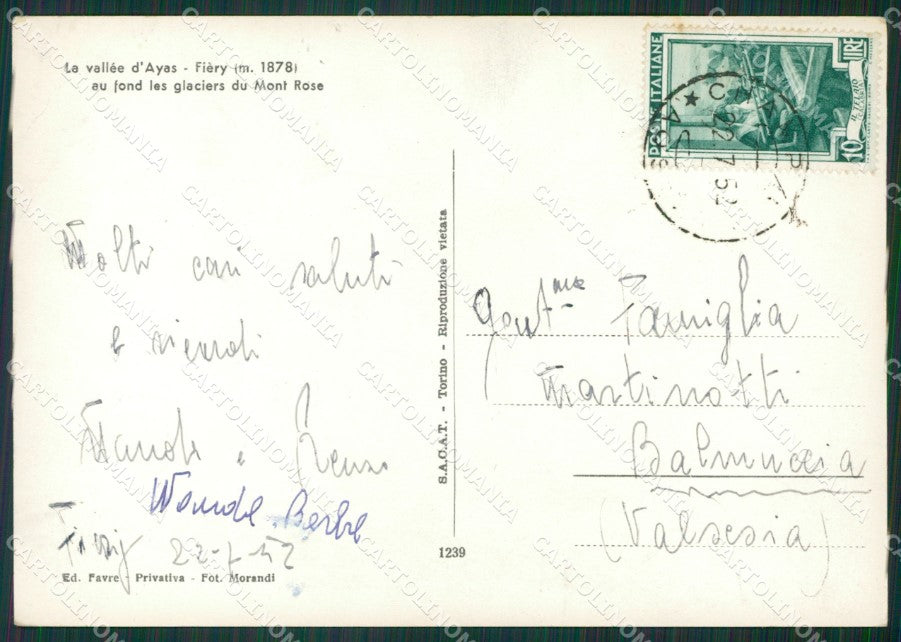 La vallée d'Ayas - Fièry (m. 1878)
au fond les glaciers du Mont Rose
POSTE ITALIANE
LIRE
10
22 7 52
Molti cari saluti
e ricordi
e Renzo
Wanda
22-7-52
Ed. Favre - Privativa - Fot. Morandi
S.A.C.A.T. - Torino - Riproduzione vietata
1239
Gent.me Famiglia
Martinotti
Balmuccia
(Valsesia)
CARTOLINOMANIA